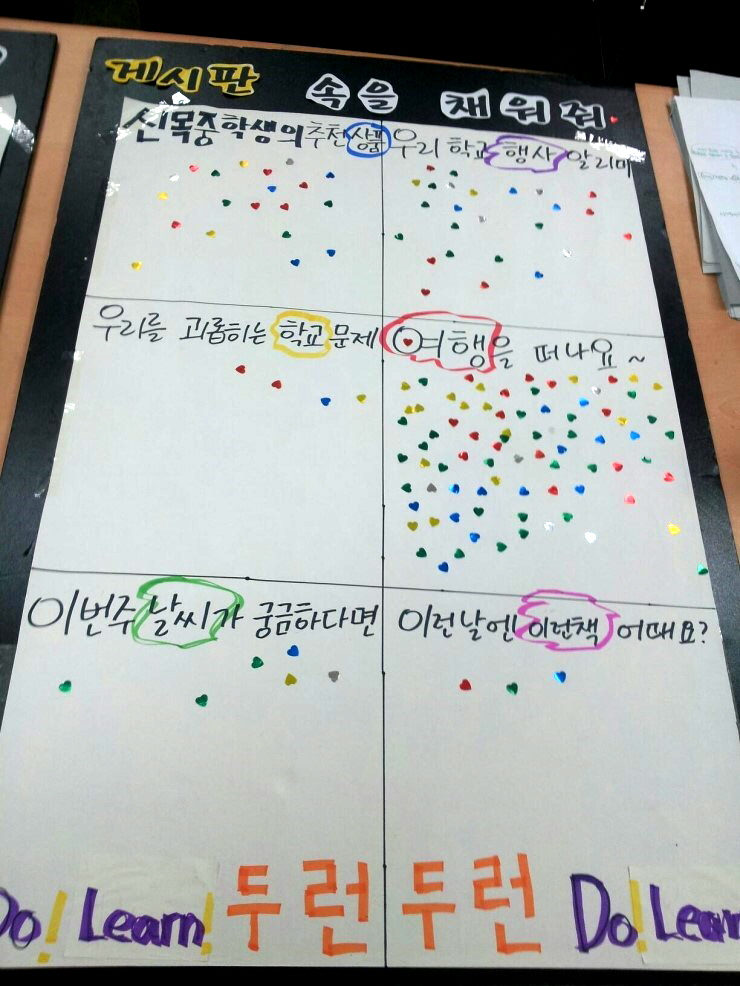 게시판 속을 채워줘
신목중학생의 추천상품
우리 학교 행사 알리미
우리를 괴롭히는 학교 문제
여행을 떠나요~
이번주 날씨가 궁금하다면
이런날엔 이런책 어때요?
Do! Learn! 두런 두런 Do! Lear